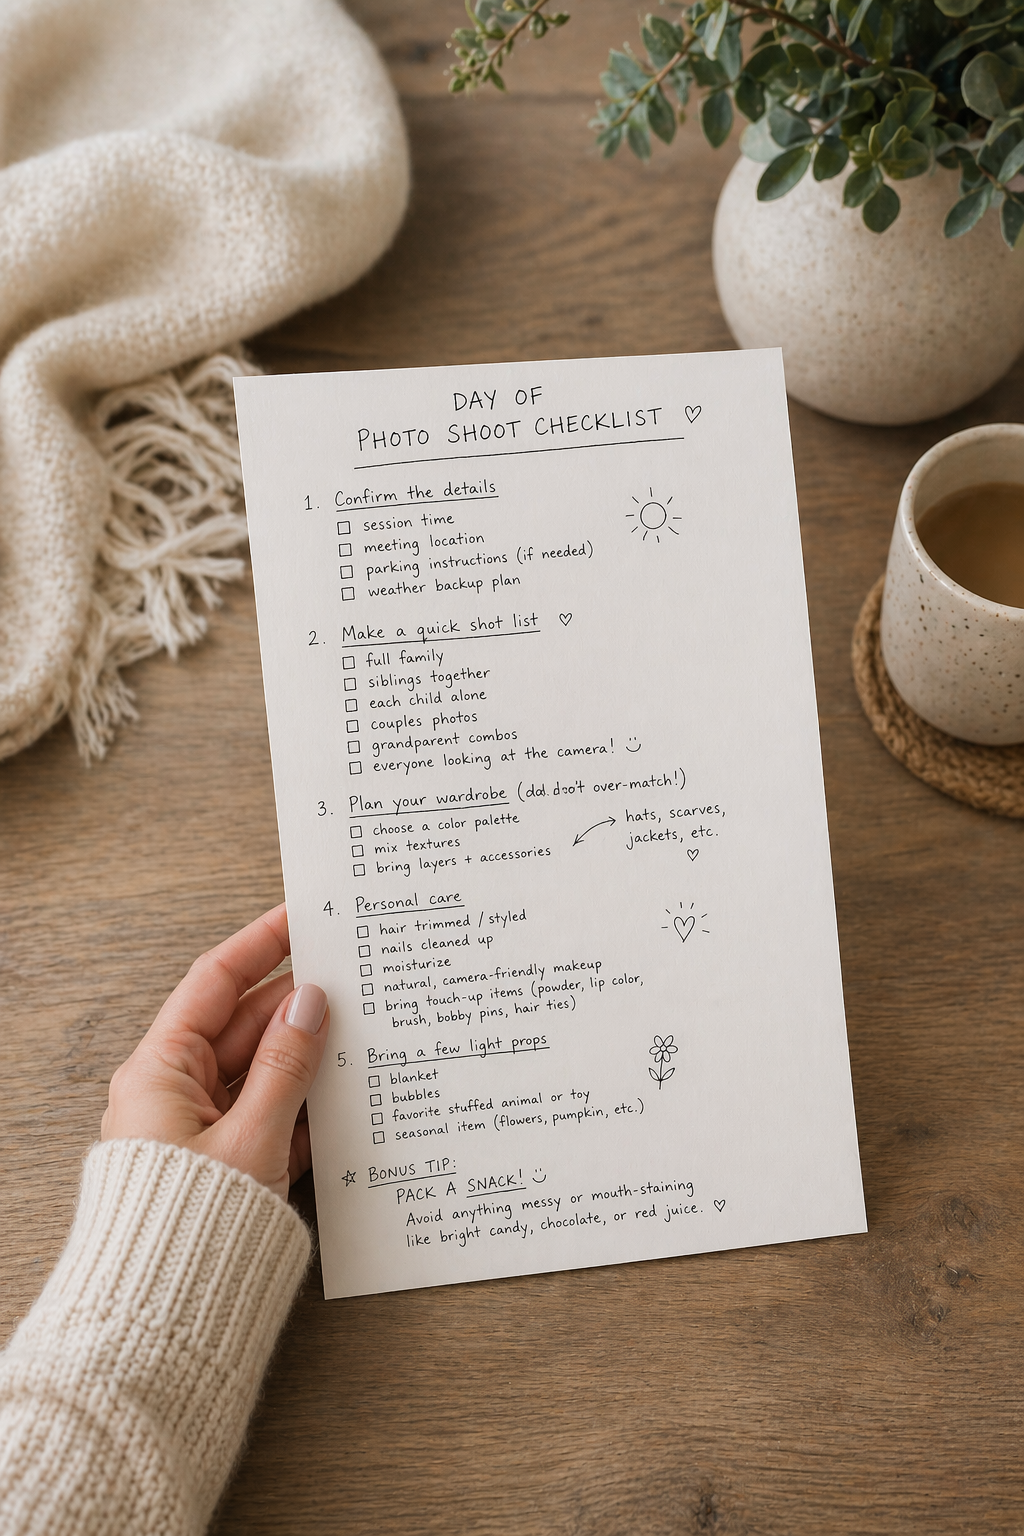 DAY OF
PHOTO SHOOT CHECKLIST
1. Confirm the details
session time
meeting location
parking instructions (if needed)
weather backup plan
2. Make a quick shot list
full family
siblings together
each child alone
couples photos
grandparent combos
everyone looking at the camera!
3. Plan your wardrobe over-match!)
choose a color palette
mix textures
bring layers + accessories
hats, scarves,
jackets, etc.
4. Personal care
hair trimmed / styled
nails cleaned up
moisturize
natural, camera-friendly makeup
bring touch-up items (powder, lip color,
brush, bobby pins, hair ties)
5. Bring a few light props
blanket
bubbles
favorite stuffed animal or toy
seasonal item (flowers, pumpkin, etc.)
BONUS TIP:
PACK A SNACK!
Avoid anything messy or mouth-staining
like bright candy, chocolate, or red juice.